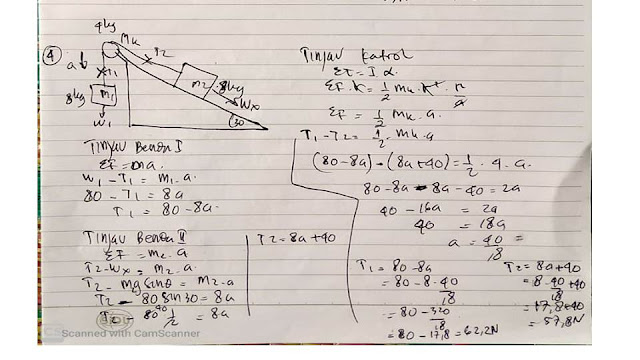 4
4kg
Mk
T2
a
T1
8kg
m1
W1
m2
8kg
Wx
30
Tinjau Benda I
ΣF = ma
W1 - T1 = m1 . a
80 - T1 = 8a
T1 = 80 - 8a
Tinjau Benda II
T2 - Wx = m2 . a
T2 - mg sinθ = m2 - a
T2 - 80 sin 30 = 8a
T2 - 80 40 1/2 = 8a
T2 = 8a + 40
Tinjau katrol
Στ = I α
ΣF = 1/2 mk . a
T1 - T2 = 1/2 - mk . a
(80 - 8a) - (8a + 40) = 1/2 . 4 . a
80 - 8a - 8a - 40 = 2a
40 - 16a = 2a
40 = 18a
a = 40/18 =
T1 = 80 - 8a
= 80 - 8 . 40/18
= 80 - 320/18
= 80 - 17,8 = 62,2N
T2 = 8a + 40
= 8 . 40/18 + 40
= 17,8 + 40
= 57,8N
CS
Scanned with CamScanner